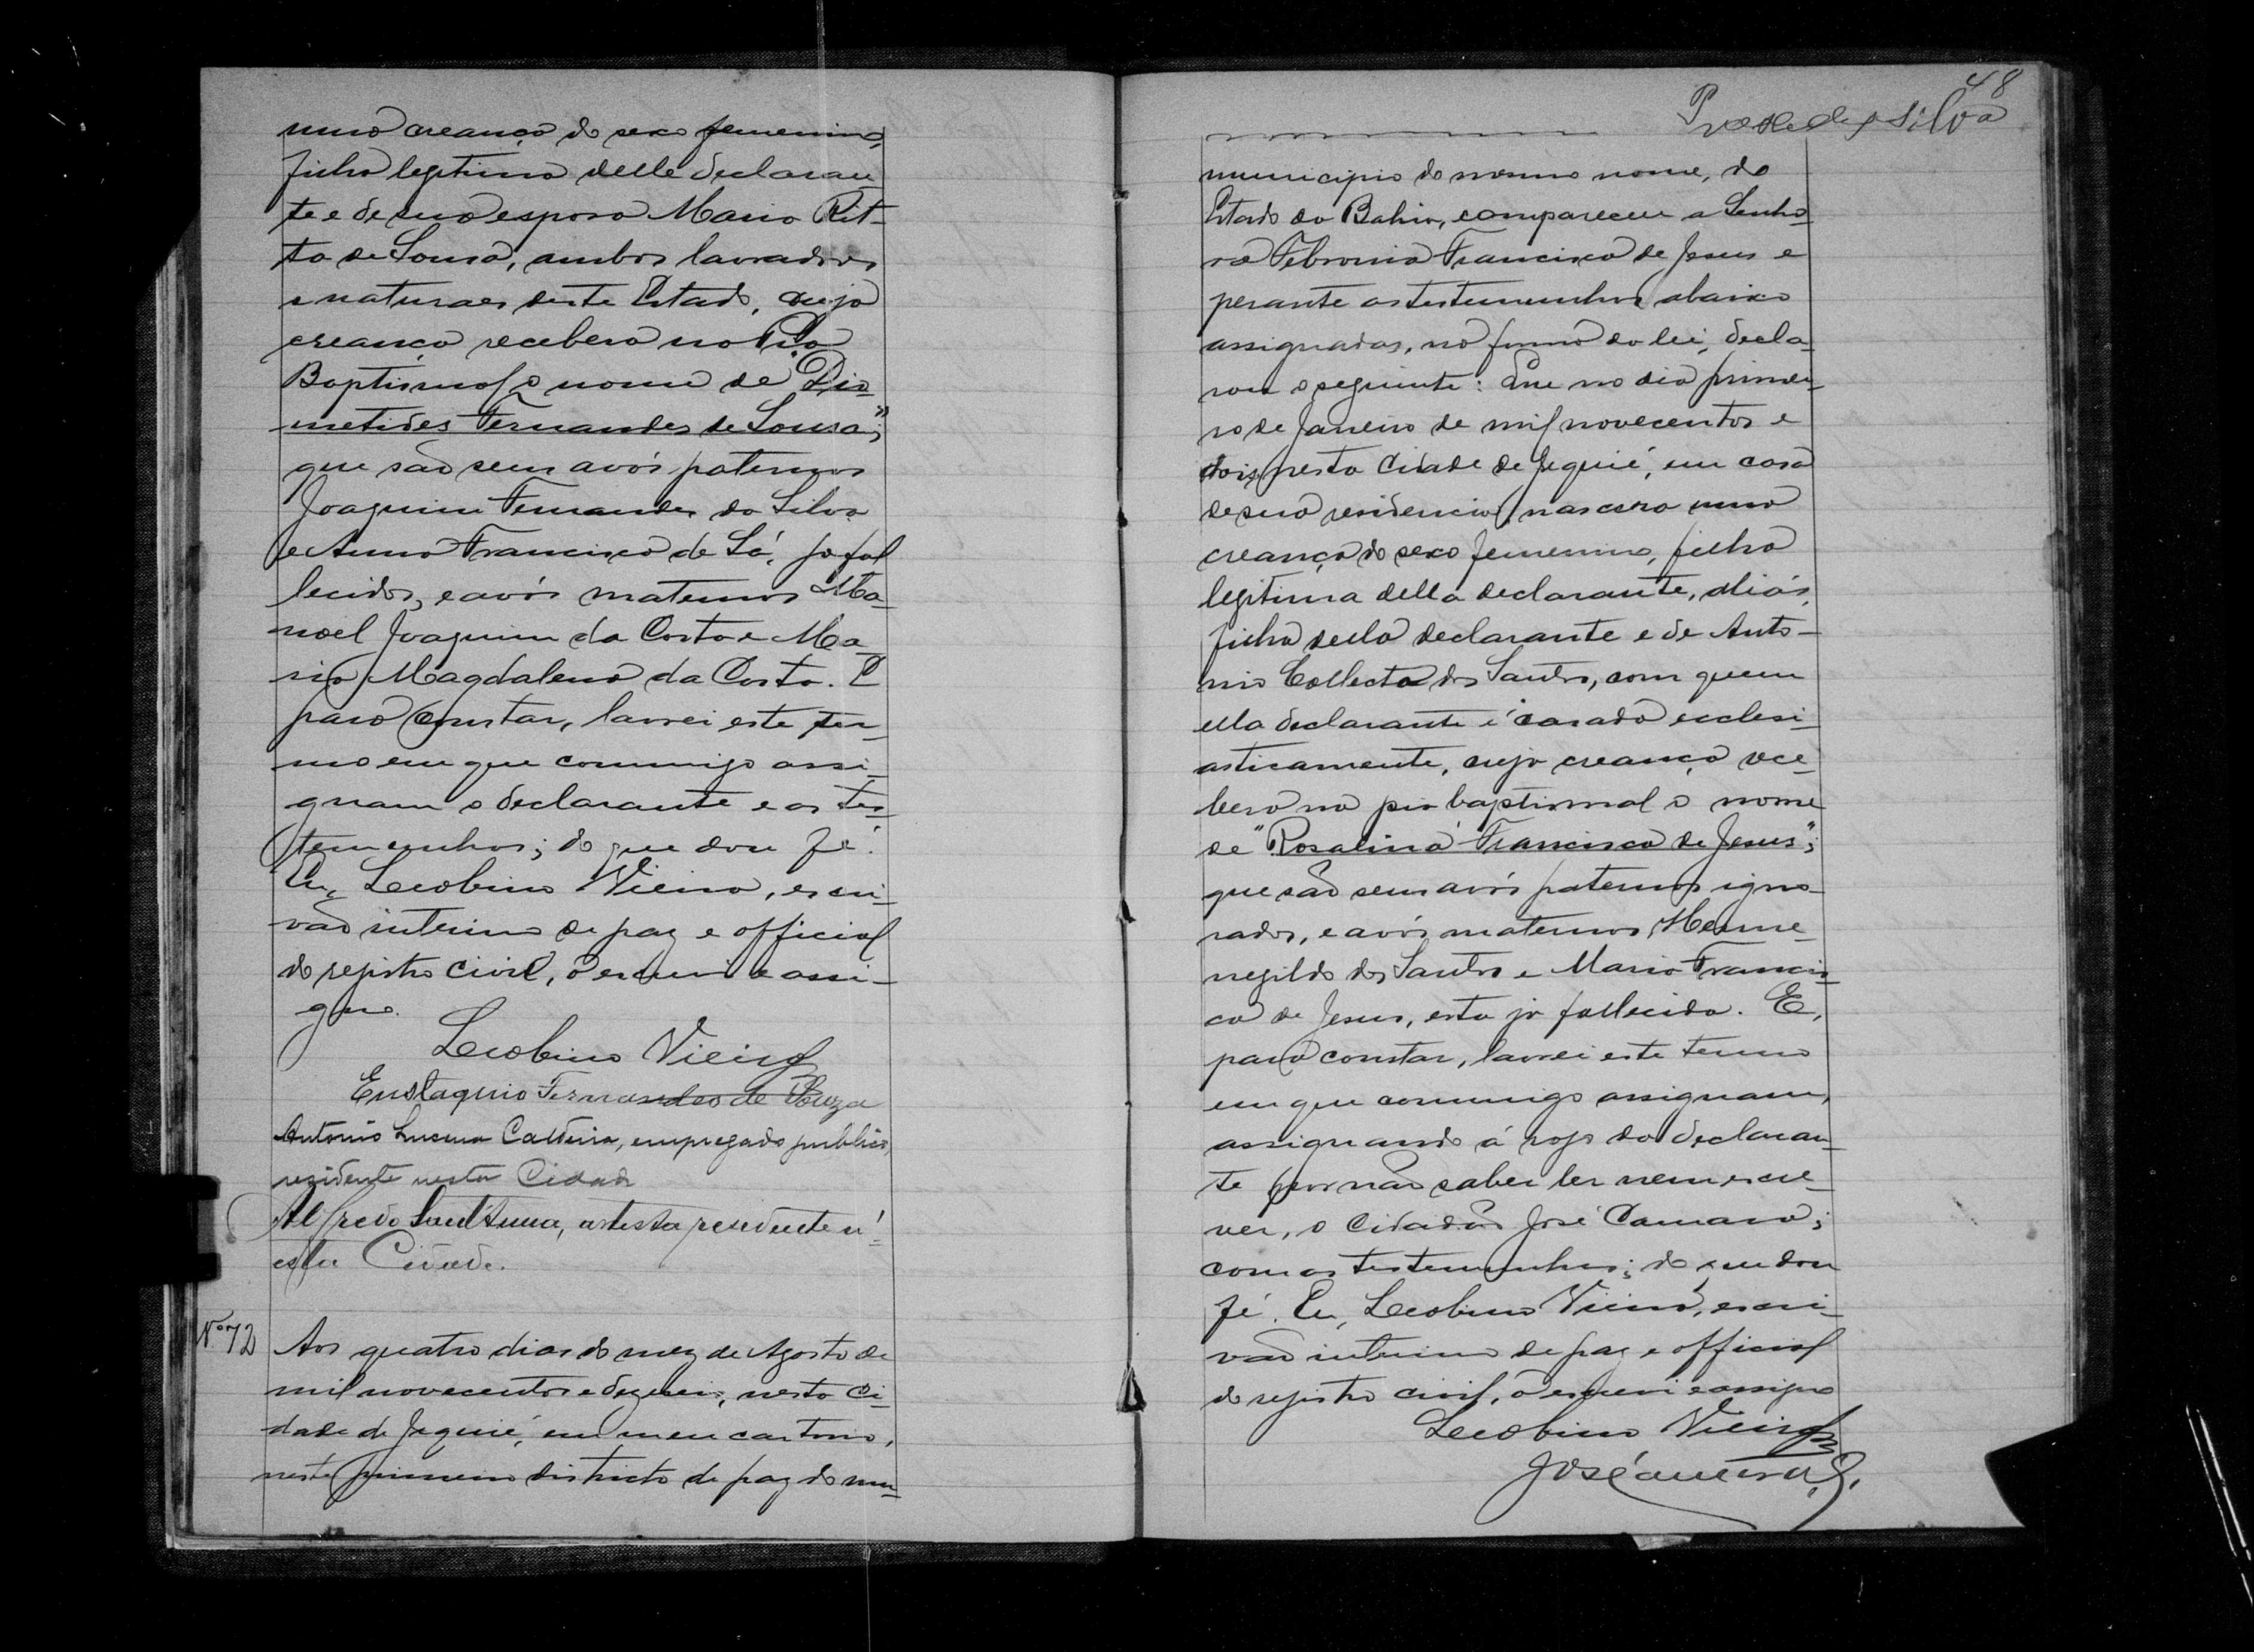 uma creança do sexo femenino,
filha legitima delle declaran-
te e de sua esposa Maria Rit-
ta de Sousa, ambos lavradores
e naturaes deste Estado, cuja
creança receberá na Pia
Baptismal o nome de "Dio-
metides Fernandes de Sousa";
que são seus avós paternos
Joaquim Fernandes da Silva
e Anna Francisca de Sá, já fal
lecidos, e avós maternos Ma-
noel Joaquim da Costa e Ma-
ria Magdalena da Costa. E
para constar, lavrei este ter-
mo em que commigo assi-
gnam o declarante e as tes-
temunhas; do que dou fé.
Eu, Leobino Vieira, escri-
vão interino de paz e official
do registro civil, o escrevi e assi-
gno.
Leobino Vieira
Eustaquio Fernandes de Souza
Antonio Lucena Caldeira, empregado publico,
residente nesta Cidade
Alfredo Sant'Anna, artista residente n'
esta Cidade.
Nº 72
Aos quatro dias do mez de Agosto de
mil novecentos e dezeseis, nesta Ci-
dade de Jequié, em meu cartorio,
neste primeiro districto de paz do mu-
48
Silva
municipio do mesmo nome, do
Estado da Bahia, compareceu a Senho-
ra Febronia Francisca de Jesus e
perante as testemunhas abaixo
assignadas, na forma da lei, decla-
rou o seguinte: Que no dia primei-
ro de Janeiro de mil novecentos e
dois, nesta Cidade de Jequié, em casa
de sua residencia, nascera uma
creança do sexo femenino, filha
legitima della declarante, aliás,
filha della declarante e de Anto-
nio Collecta dos Santos, com quem
ella declarante é casada ecclesi-
asticamente, cuja creança rece-
berá na pia baptismal o nome
de "Rosalina Francisca de Jesus";
que são seus avós paternos igno-
rados, e avós maternos, Herme-
negildo dos Santos e Maria Francis-
ca de Jesus, esta já fallecida. E,
para constar, lavrei este termo
em que commigo assignam,
assignando á rogo da declaran-
te por não saber ler nem escre-
ver, o Cidadão José Camara;
com as testemunhas; do que dou
fé. Eu, Leobino Vieira, escri-
vão interino de paz e official
do registro civil, o escrevi e assigno
Leobino Vieira